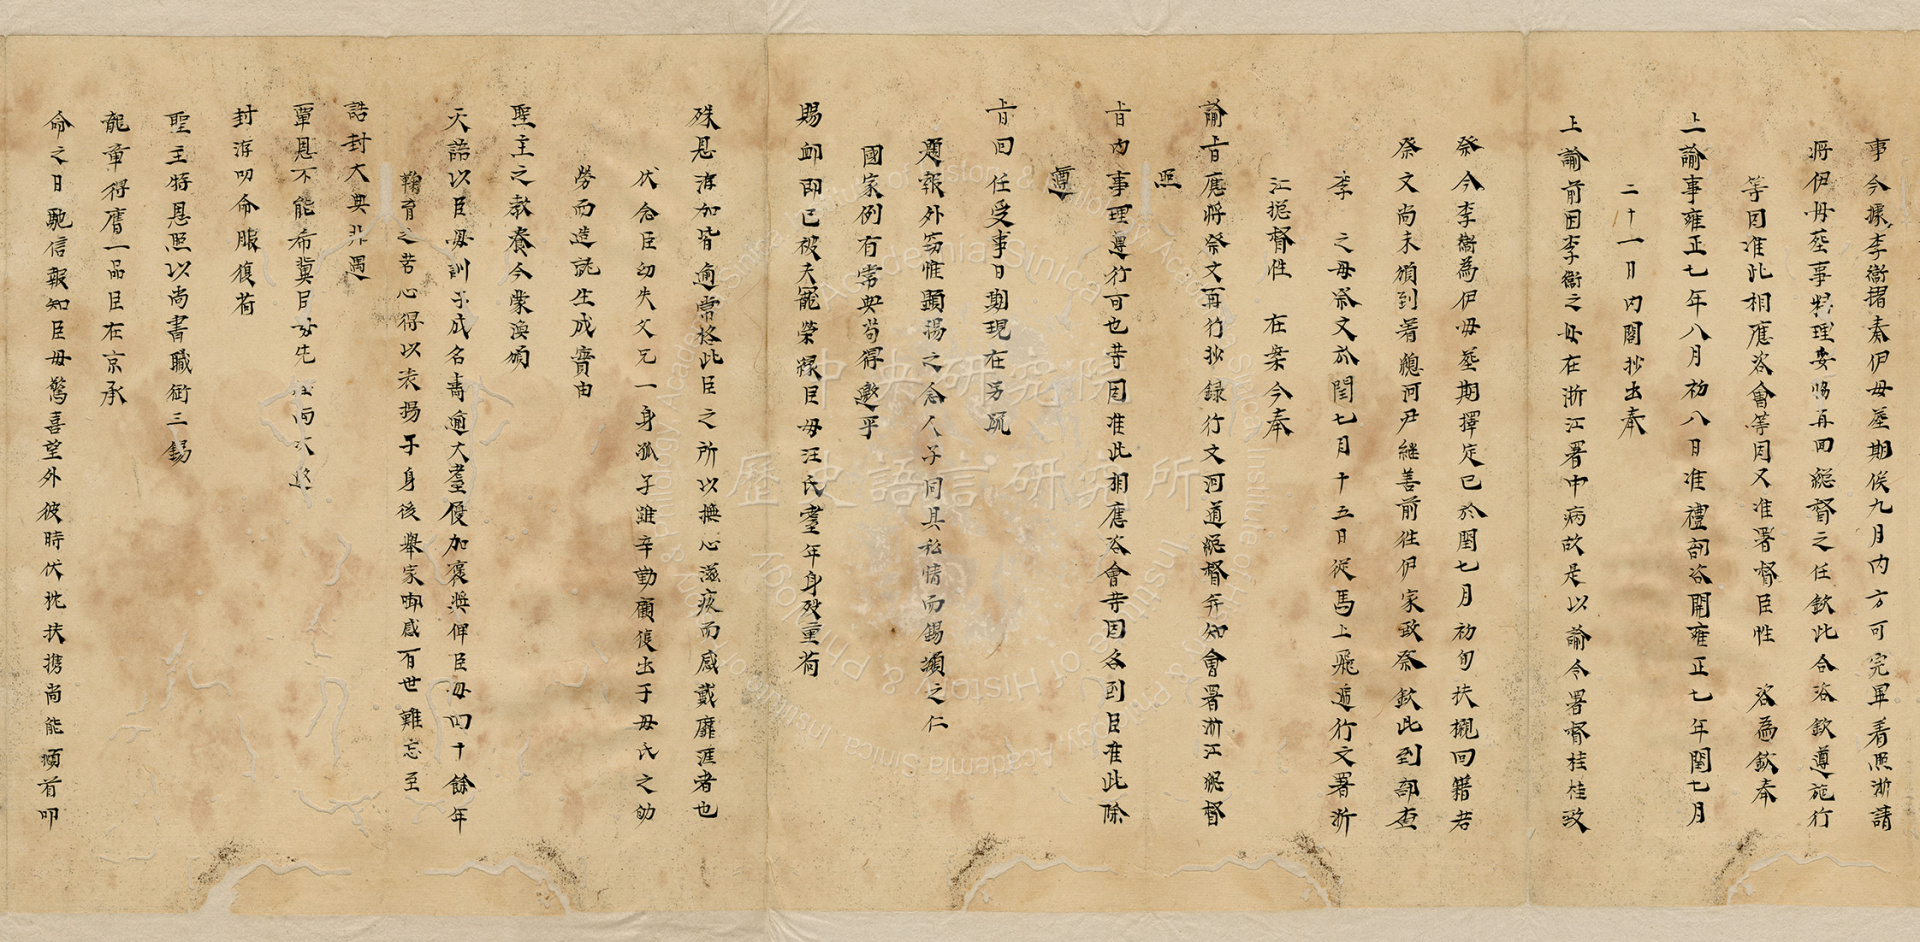 事今據李衞摺奏伊母塟期俟九月內方可完畢着照浙請
將伊母塟事料理妥協再回總督之任欽此合咨欽遵施行
等因准此相應咨會等因又准署督臣性 咨為欽奉
上諭事雍正七年八月初八日准禮部咨開雍正七年閏七月
二十一日內閣抄出奉
上諭前因李衞之母在浙江署中病故是以諭令署督桂桂致
祭今李衞為伊母塟期擇定已於閏七月初旬扶櫬回籍若
祭文尚未頒到着總河尹繼善前往伊家致祭欽此到部查
李 之母祭文於閏七月十五日從馬上飛遞行文署浙
江揔督性 在案今奉
諭旨應將祭文再行抄録行文河道總督并知會署浙江總督
照
旨內事理遵行可也等因准此相應咨會等因各到臣准此除
遵
旨回任受事日期現在另疏
題報外窃惟顯揚之念人子同具私情而錫類之仁
國家例有常典苟得邀乎
賜卹即已被夫寵榮緣臣母汪氏耄年身歿重荷
殊恩洊加皆逾常格此臣之所以撫心滋疚而感戴靡涯者也
伏念臣幼失父兄一身孤子雖辛勤顧復出于母氏之劬
勞而造就生成實由
聖主之教養今蒙渙頒
天語以臣母訓子成名壽逾大耋優加褒獎俾臣母四十餘年
鞠育之苦心得以表揚于身後舉家啣感百世難忘至
誥封大典非遇
覃恩不能希冀臣母先 而 邀
封洊叨命服復荷
聖主特恩照以尚書職銜三錫
龍章得膺一品臣在京承
命之日馳信報知臣母驚喜望外彼時伏枕扶携尚能頫首叩
中央研究院
歷史語言研究所
Institute of History & Philology Academia Sinica